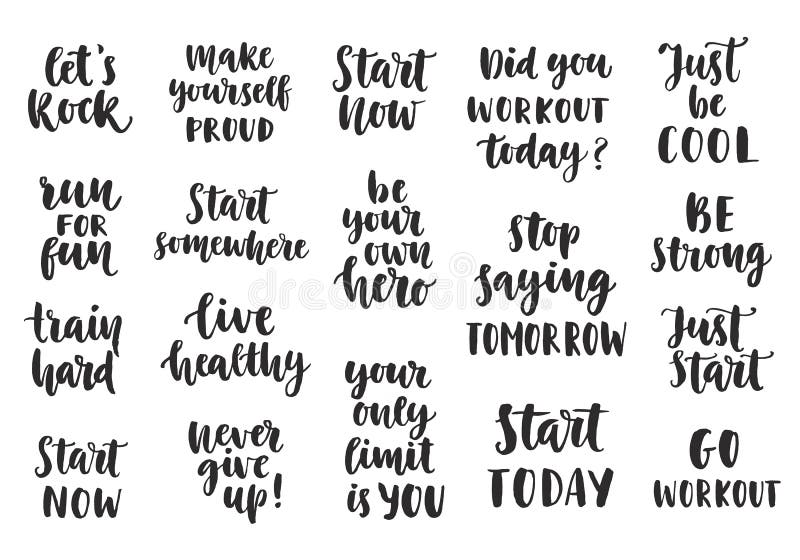 let's
Rock
Make
yourself
PROUD
Start
Now
Did you
WORKOUT
today?
Just
be
COOL
run
FOR
fun
Start
somewhere
be
your
own
hero
Stop
saying
TOMORROW
BE
Strong
train
hard
live
healthy
your
only
limit
is YOU
Just
Start
Start
NOW
Never
give
up!
Start
TODAY
GO
WORKOUT
dreamstime